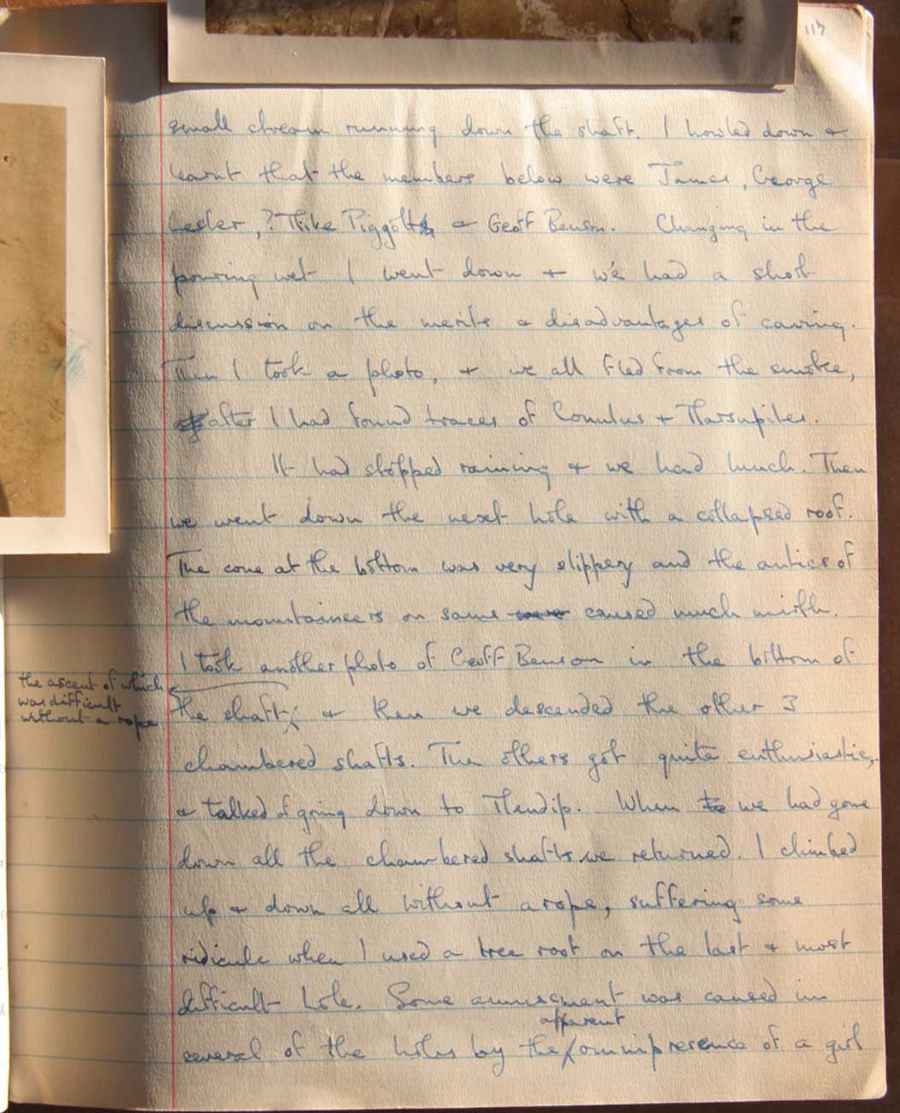 113
small stream running down the shaft. I howled down +
learnt that the members below were James, George
Lester, ? Mike Piggott + Geoff Benson. Changing in the
pouring wet I went down + we had a short
discussion on the merits + disadvantages of caving.
Then I took a photo, + we all fled from the smoke,
after I had found traces of Conulus + Marsupites.
It had stopped raining + we had lunch. Then
we went down the next hole with a collapsed roof.
The cone at the bottom was very slippery and the antics of
the mountaineers on same caused much mirth.
I took another photo of Geoff Benson in the bottom of
the ascent of which
was difficult
without a rope
the shaft, + then we descended the other 3
chambered shafts. The others got quite enthusiastic,
+ talked of going down to Mendip. When we had gone
down all the chambered shafts we returned. I climbed
up + down all without a rope, suffering some
ridicule when I used a tree root on the last + most
difficult hole. Some amusement was caused in
apparent
several of the holes by the omnipresence of a girl